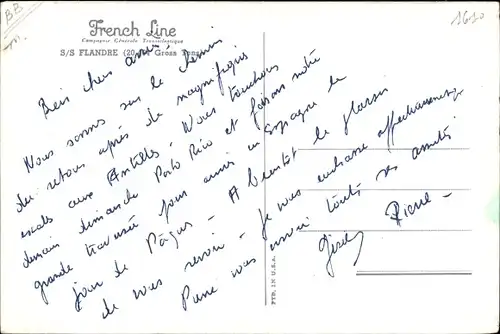 BB
1610
French Line
Compagnie Générale Transatlantique
S/S FLANDRE (20, Gross Tons)
Bien chers amis
Nous sommes sur le chemin
du retour après de magnifiques
escales aux Antilles - Nous touchons
demain dimanche Porto Rico et faisons notre
grande traversée pour arriver en Espagne le
jour de Pâques - A bientôt le plaisir
de vous revoir - Je vous embrasse affectueusement
Pierre vous envoie toutes ses amitiés
Pierre -
PTD. IN U.S.A.